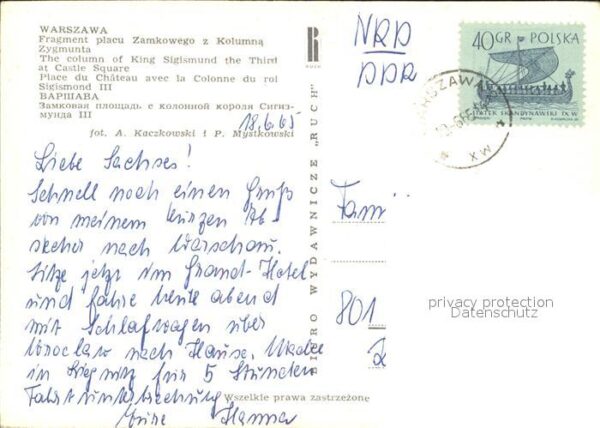 WARSZAWA
Fragment placu Zamkowego z Kolumną
Zygmunta
The column of King Sigismund the Third
at Castle Square
Place du Château avec la Colonne du roi
Sigismond III
ВАРШАВА
Замковая площадь с колонной короля Сигиз-
мунда III
fot. A. Kaczkowski i P. Mystkowski
18.6.65
Liebe Sachses!
Schnell noch einen Gruß
von meinem kurzen Ab
stecher nach Warschau.
Sitze jetzt im Grand-Hotel
und fahre heute abend
mit Schlafwagen über
Wroclaw nach Hause. Mache
in Liegnitz für 5 Stunden
Fahrtunterbrechung
Eure Hanna
Wszelkie prawa zastrzeżone
BIURO WYDAWNICZE „RUCH"
R
RUCH
NRD
DDR
40 GR POLSKA
STATEK SKANDYNAWSKI IX W.
WARSZAWA
Fam
801
privacy protection
Datenschutz